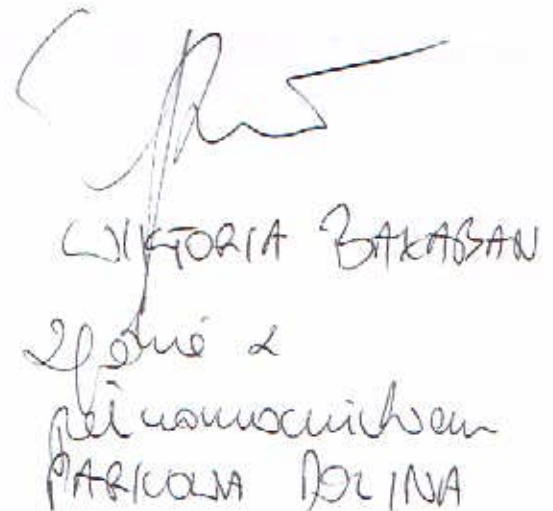 WIKTORIA BAKABAN
zgodnie z
pełnomocnictwem
PARKOWA DOLINA